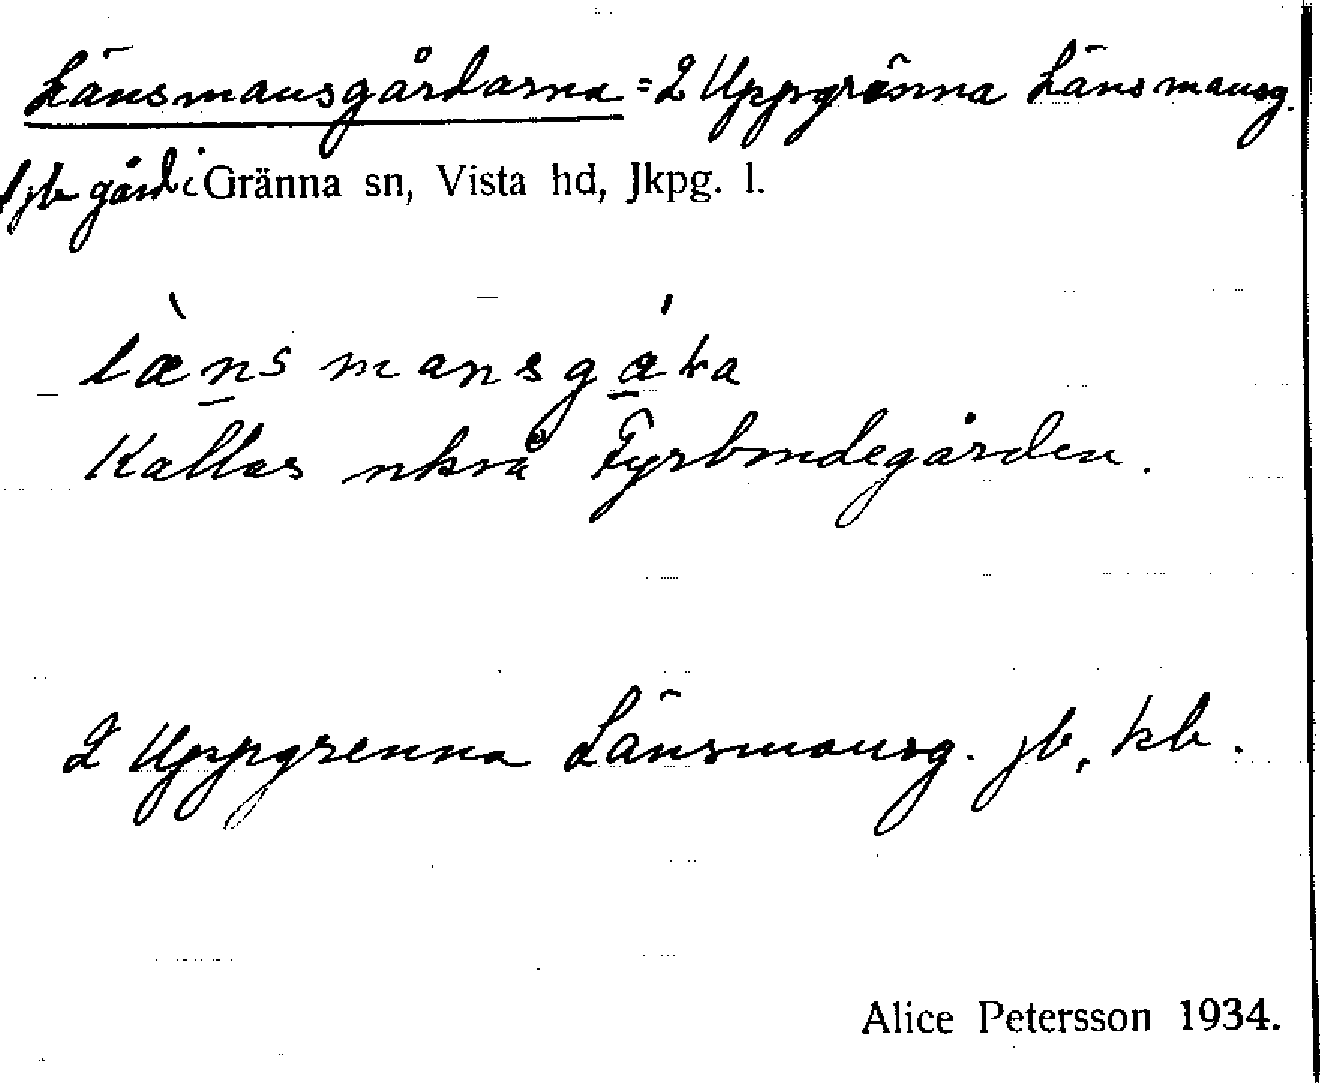 Länsmansgårdarna = 2 Uppgränna Länsmansg.
jb gård i Gränna sn, Vista hd, Jkpg. l.
lænsmansga
Kallas också Fyrbondegården.
2 Uppgrenna Länsmansg. jb, kb.
Alice Petersson 1934.